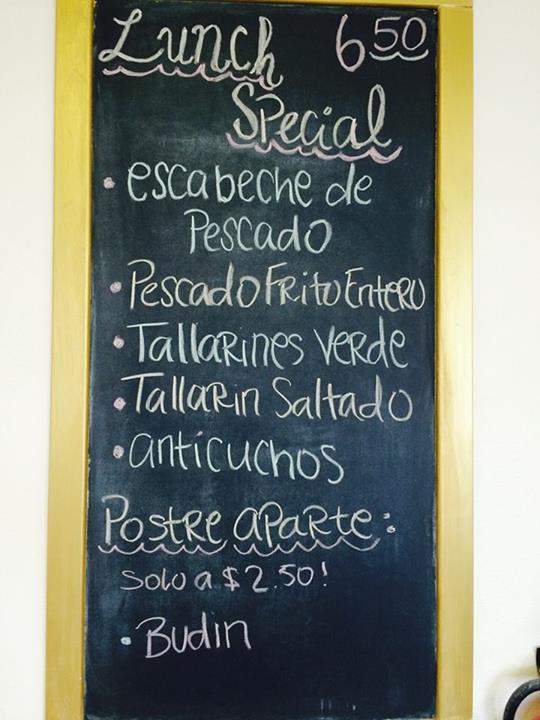 Lunch 6 50
Special
• escabeche de
Pescado
• Pescado Frito Entero
• Tallarines verde
• Tallarin Saltado
• anticuchos
Postre aparte:
Solo a $2.50!
• Budin